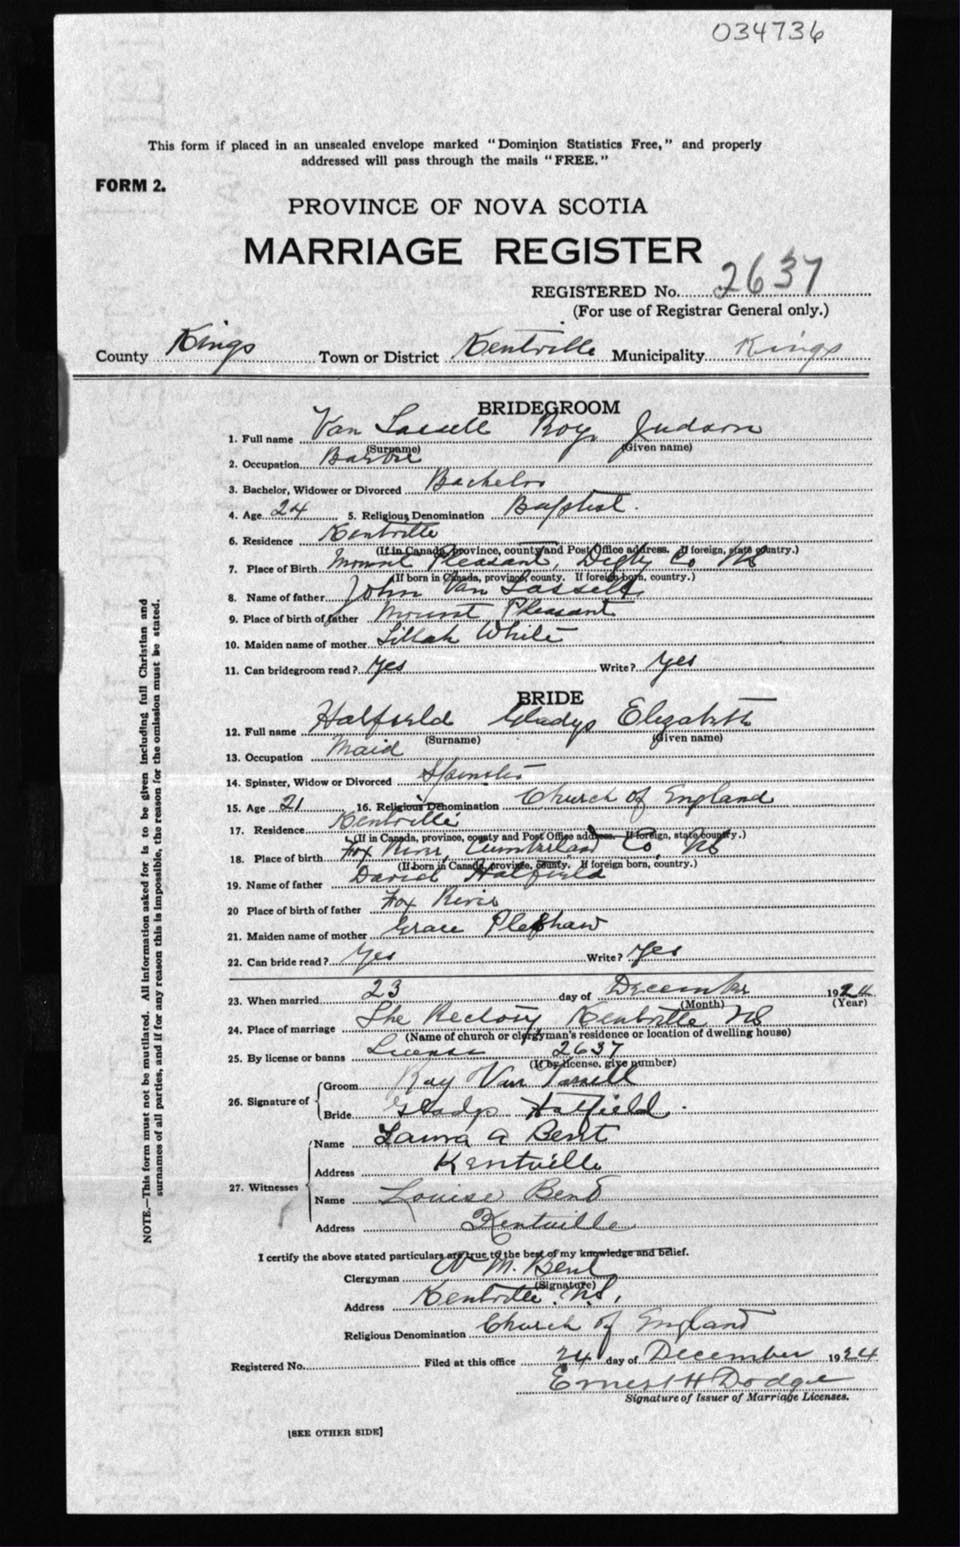 034736
This form if placed in an unsealed envelope marked "Dominion Statistics Free," and properly
addressed will pass through the mails "FREE."
FORM 2.
PROVINCE OF NOVA SCOTIA
MARRIAGE REGISTER
REGISTERED No. 2637
(For use of Registrar General only.)
County Kings Town or District Kentville Municipality Kings
BRIDEGROOM
1. Full name Van Tassell Roy Judson
(Surname) (Given name)
2. Occupation
3. Bachelor, Widower or Divorced Bachelor
4. Age 24 5. Religious Denomination Baptist.
6. Residence Kentville
(If in Canada, province, county and Post Office address. If foreign, state country.)
7. Place of Birth Mount Pleasant, Digby Co NS
(If born in Canada, province, county. If foreign born, country.)
8. Name of father John Van Tassell
9. Place of birth of father Mount Pleasant
10. Maiden name of mother Lillah White
11. Can bridegroom read? Yes Write? Yes
BRIDE
12. Full name Hatfield Gladys Elizabeth
(Surname) (Given name)
13. Occupation Maid
14. Spinster, Widow or Divorced Spinster
15. Age 21 16. Religious Denomination Church of England
17. Residence Kentville
(If in Canada, province, county and Post Office address. If foreign, state country.)
18. Place of birth Fox River, Cumberland Co, NS
(If born in Canada, province, county. If foreign born, country.)
19. Name of father David Hatfield
20 Place of birth of father Fox River
21. Maiden name of mother Grace
22. Can bride read? Yes Write? Yes
23. When married 23 day of December 1924
(Month) (Year)
24. Place of marriage The Rectory Kentville NS
(Name of church or clergyman's residence or location of dwelling house)
25. By license or banns License 2637
(If by license, give number)
26. Signature of Groom Roy Van Tassell
Bride Gladys Hatfield.
27. Witnesses Name Laura A Bent
Address Kentville
Name Louise Bent
Address Kentville
I certify the above stated particulars are true to the best of my knowledge and belief.
Clergyman M. Bent
(Signature)
Address Kentville. N.S.
Religious Denomination Church of England
Registered No. Filed at this office 24 day of December 1924
Ernest H Dodge
Signature of Issuer of Marriage Licenses.
[SEE OTHER SIDE]
NOTE.—This form must not be mutilated. All information asked for is to be given including full Christian and
surnames of all parties, and if for any reason this is impossible, the reason for the omission must be stated.